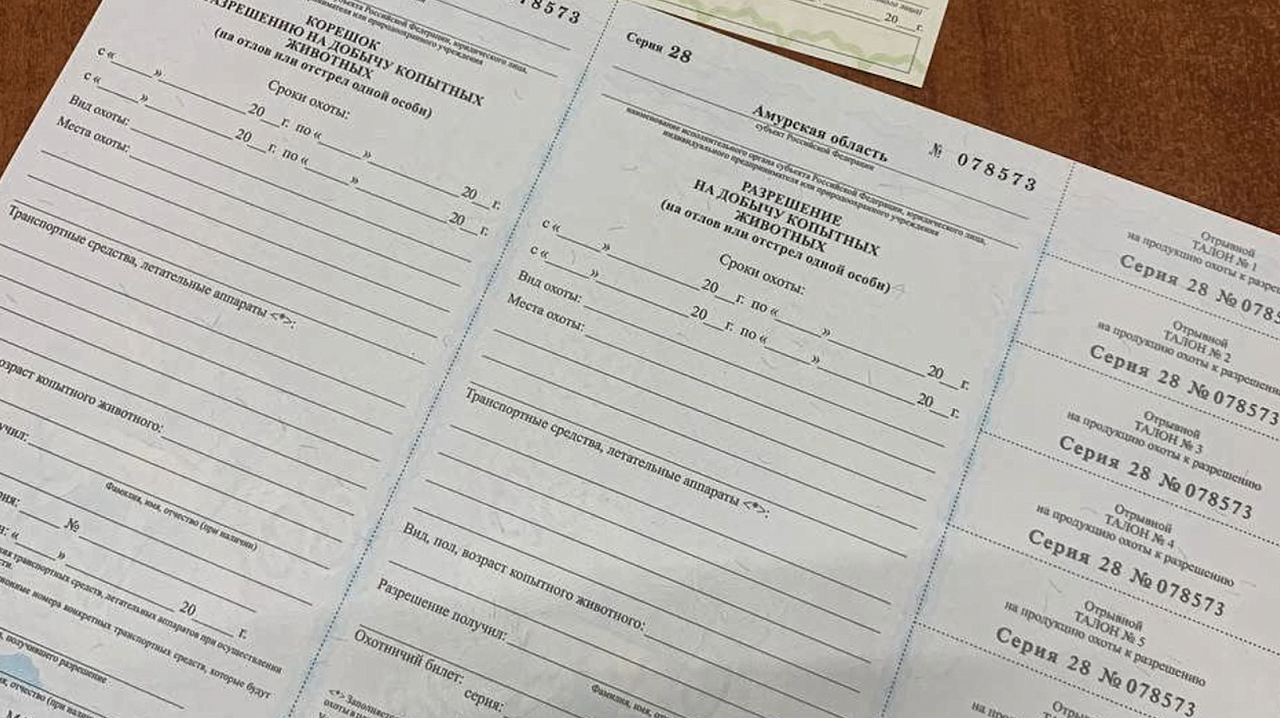 078573
субъекта Российской Федерации, юридического лица,
предпринимателя или природоохранного учреждения
КОРЕШОК
РАЗРЕШЕНИЮ НА ДОБЫЧУ КОПЫТНЫХ
ЖИВОТНЫХ
(на отлов или отстрел одной особи)
Сроки охоты:
с «____»____ 20__г. по «____»____ 20__г.
с «____»____ 20__г. по «____»____ 20__г.
Вид охоты:
Места охоты:
Транспортные средства, летательные аппараты <*>:
возраст копытного животного:
Фамилия, имя, отчество (при наличии)
№
«____»____ 20__г.
транспортных средств, летательных аппаратов при осуществлении
номера конкретных транспортных средств, которые будут
получившего разрешение
20__г.
Серия 28
Амурская область
субъект Российской Федерации
№ 078573
наименование исполнительного органа субъекта Российской Федерации, юридического лица,
индивидуального предпринимателя или природоохранного учреждения
РАЗРЕШЕНИЕ
НА ДОБЫЧУ КОПЫТНЫХ
ЖИВОТНЫХ
(на отлов или отстрел одной особи)
Сроки охоты:
с «____»____ 20__г. по «____»____ 20__г.
с «____»____ 20__г. по «____»____ 20__г.
Вид охоты:
Места охоты:
Транспортные средства, летательные аппараты <*>:
Вид, пол, возраст копытного животного:
Разрешение получил:
Фамилия, имя,
Охотничий билет: серия:
Отрывной
ТАЛОН № 1
на продукцию охоты к
Серия 28 № 078
Отрывной
ТАЛОН № 2
на продукцию охоты к разрешени
Серия 28 № 078573
Отрывной
ТАЛОН № 3
на продукцию охоты к разрешению
Серия 28 № 078573
Отрывной
ТАЛОН № 4
на продукцию охоты к разрешению
Серия 28 № 078573
Отрывной
ТАЛОН № 5
на продукцию охоты к разрешению
Серия 28 № 078573
Отрывной